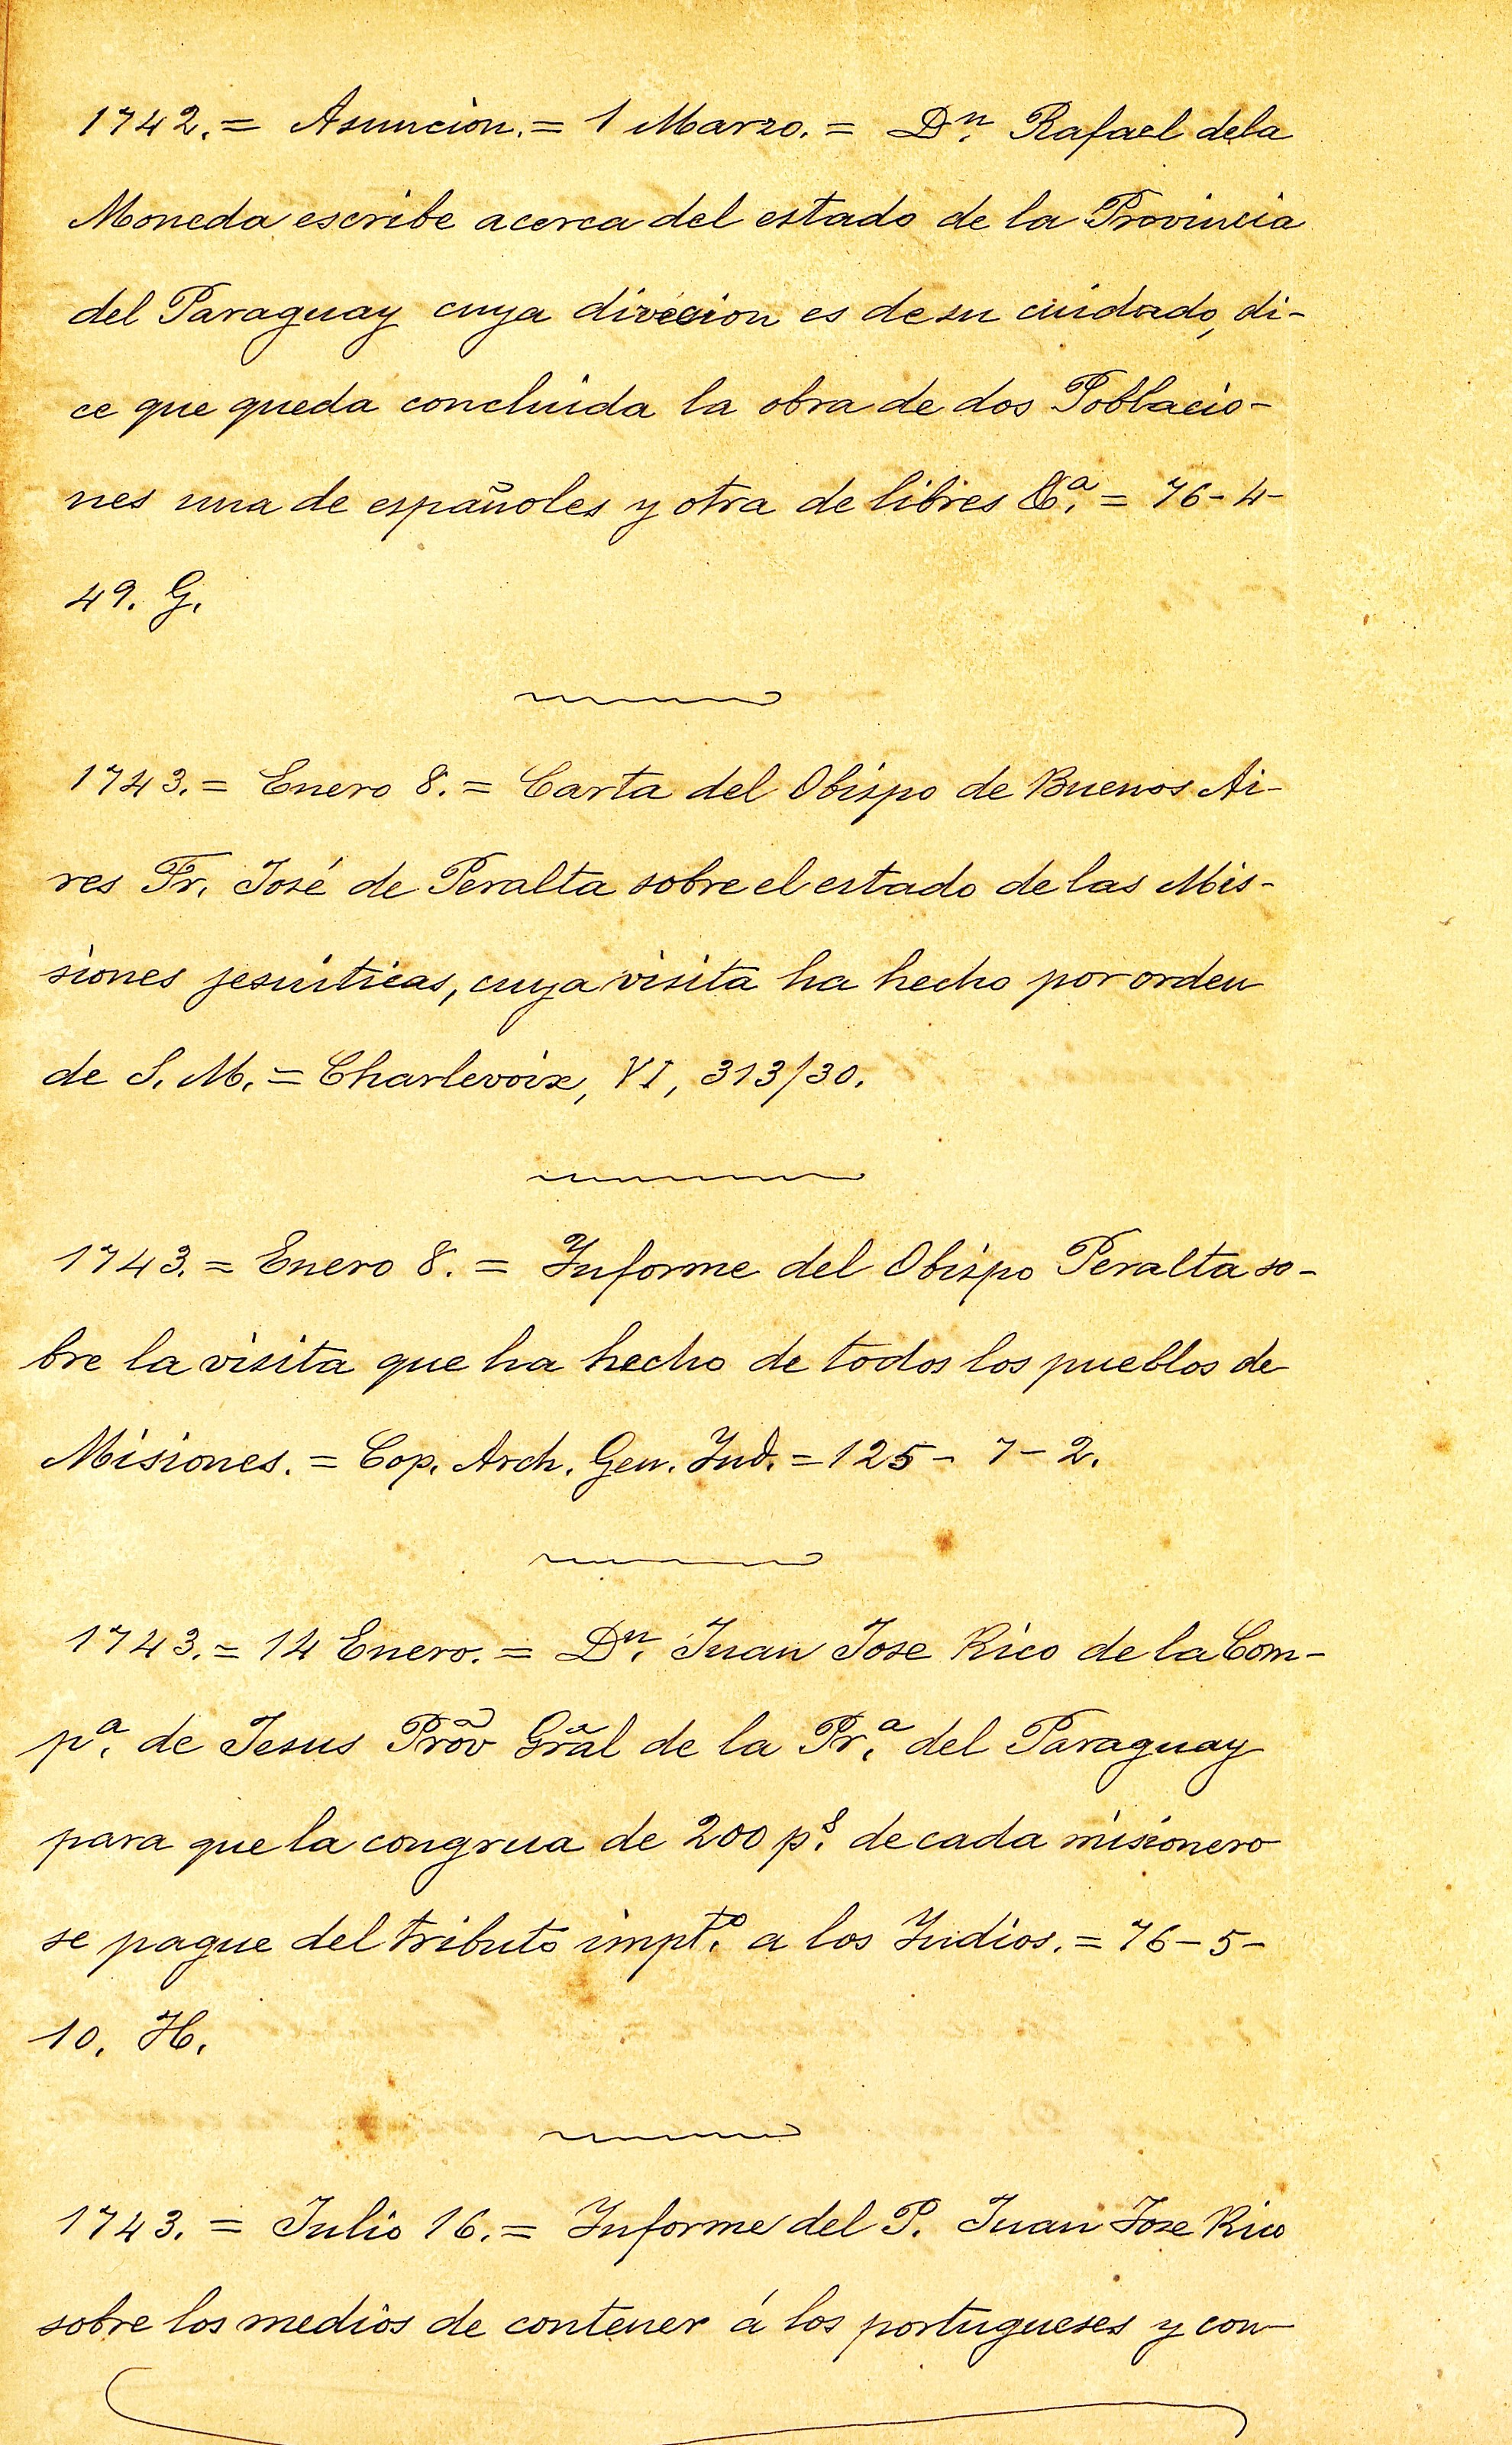 1742. = Asuncion. = 1 Marzo. = Dⁿ. Rafael dela
Moneda escribe acerca del estado de la Provincia
del Paraguay cuya direccion es de su cuidado, di-
ce que queda concluida la obra de dos Poblacio-
nes una de españoles y otra de libres &ª. = 76-4-
49. G.
1743. = Enero 8. = Carta del Obispo de Buenos Ai-
res Fr. José de Peralta sobre el estado de las Mis-
siones jesuiticas, cuya visita ha hecho por orden
de S. M. = Charlevoix, VI, 313/30.
1743. = Enero 8. = Informe del Obispo Peralta so-
bre la visita que ha hecho de todos los pueblos de
Misiones. = Cop. Arch. Gen. Ind. = 125- 7- 2.
1743. = 14 Enero. = Dⁿ. Juan Jose Rico de la Com-
pª. de Jesus Prõv Grãl de la Pr.ª del Paraguay
para que la congrua de 200 pˢ. de cada misionero
se pague del tributo imptº. a los Indios. = 76-5-
10. H.
1743. = Julio 16. = Informe del P. Juan Jose Rico
sobre los medios de contener á los portugueses y con-